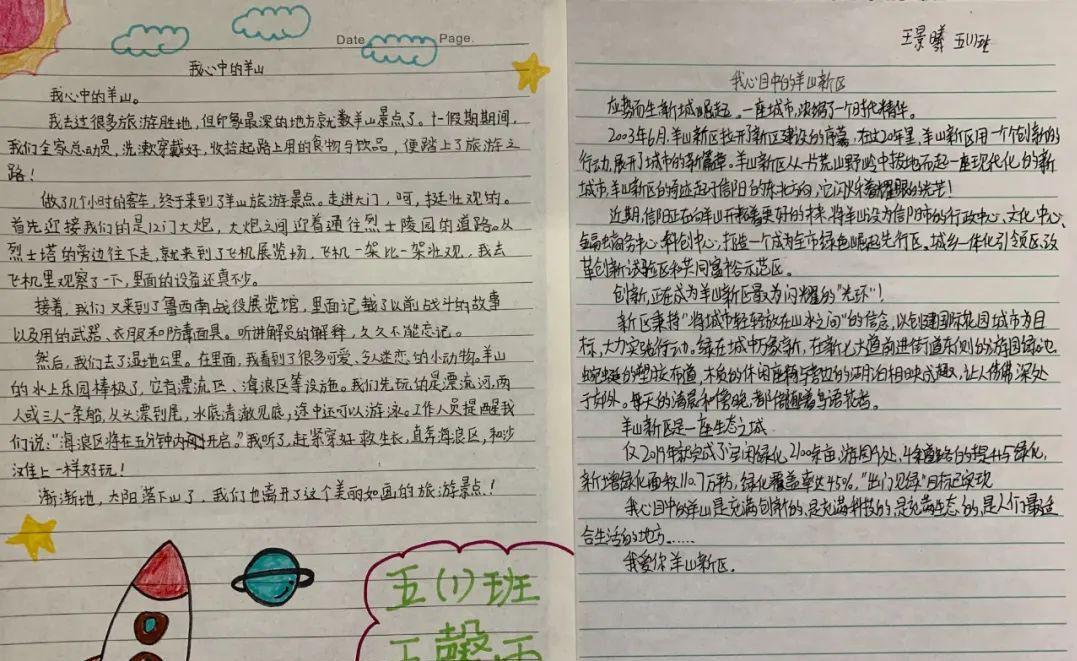 Date
Page.
我心中的羊山
我心中的羊山。
我去过很多旅游胜地,但印象最深的地方就数羊山景点了。十一假期期间,
我们全家总动员,洗漱穿戴好,收拾起路上用的食物与饮品,便踏上了旅游之
路!
做了几个小时的客车,终于来到了羊山旅游景点。走进大门,呵,挺壮观的。
首先迎接我们的是12门大炮,大炮之间迎着通往烈士陵园的道路。从
烈士塔的旁边往下走,就来到了飞机展览场,飞机一架比一架壮观,我去
飞机里观察了一下,里面的设备还真不少。
接着,我们又来到了鲁西南战役展览馆,里面记载了以前战斗的故事
以及用的武器、衣服和防毒面具。听讲解员的解释,久久不能忘记。
然后,我们去了湿地公里。在里面,我看到了很多可爱、令人迷恋的小动物。羊山
的水上乐园棒极了,它有漂流区、海浪区等设施。我们先玩的是漂流河,两
人或三人一条船,从头漂到尾,水底清澈见底,途中还可以游泳。工作人员提醒我
们说:“海浪区将在五分钟内开启。”我听了,赶紧穿好救生衣,直奔海良区,和沙
汉滩上一样好玩!
渐渐地,太阳落下山了,我们也离开了这个美丽如画的旅游景点!
五(1)班
王景曦 五(1)班
我心目中的羊山新区
应势而生新城崛起。一座城市,浓缩了一个时代精华。
2003年6月,羊山新区拉开新区建设的序幕,在这20年里,羊山新区用一个个创新的
行动,展开了城市的新篇章。羊山新区从一片荒山野岭中拔地而起一座现代化的新
城市,羊山新区的奇迹起于信阳的东北方向,它闪烁着耀眼的光芒!
近期,信阳正在向羊山开拓着更好的未来,将羊山设为信阳市的行政中心、文化中心、
金融商务中心、科创中心,打造一个成为全市绿色崛起先行区、城乡一体化引领区、改
革创新试验区和共同富裕示范区。
创新,正在成为羊山新区最为闪耀的“光环”!
新区秉持“将城市轻轻放在山水之间”的信念,以创建国际花园城市为目
标,大力实施行动。绿在城中万象新,在新七大道前进街道东侧的游园绿地,
蜿蜒的塑胶布道,木质的休闲座椅与旁边的湖泊相映成趣,让人仿佛深处
于郊外。每天的清晨和傍晚,都伴随着鸟语花香。
羊山新区是一座生态之城
仅2019年就完成了空闲绿化2100余亩,游园9处,4条道路的提升与绿化,
新增绿化面积110.7万平方,绿化覆盖率达45%,“出门见绿”目标已实现
我心目中的羊山是充满创新的,是充满科技的,是充满生态的,是人们最适
合生活的地方……
我爱你羊山新区。